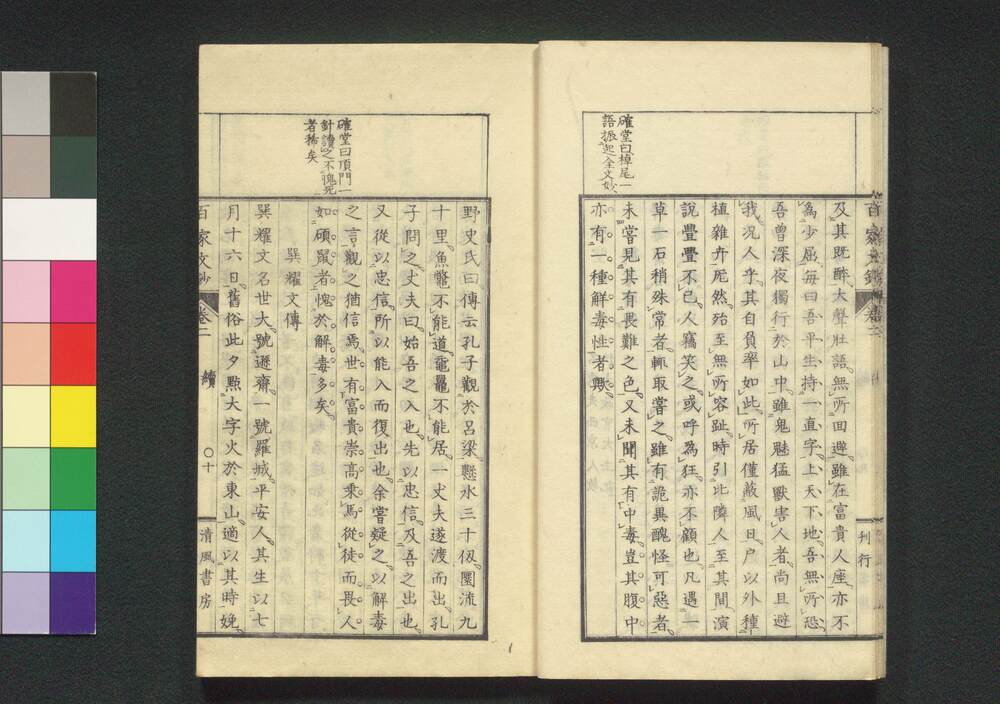 確堂曰棹尾一
語振起全文妙
及其既醉大聲壯語無所囘避雖在富貴人座亦不
為少屈每曰吾平生持一直字上天下地吾無所恐
吾曾深夜獨行於山中雖鬼魅猛獸害人者尚且避
我況人乎其自負率如此所居僅蔽風日户以外種
植雜卉厖然殆至無所容趾時引比隣人至其間演
說亹亹不已人竊笑之或呼為狂亦不顧也凡遇一
草一石稍殊常者輒取嘗之雖有詭異醜怪可惡者
未嘗見其有畏難之色又未聞其有中毒豈其腹中
亦有一種解毒性者歟
刋行
確堂曰頂門一
針讀之不愧死
者稀矣
野史氏曰傳云孔子觀於呂梁懸水三十仭圜流九
十里魚鼈不能道黿鼉不能居一丈夫遂渡而出孔
子問之丈夫曰始吾之入也先以忠信及吾之出也
又從以忠信所以能入而復出也余嘗疑之以解毒
之言觀之猶信焉世有富貴崇高乘馬從徒而畏人
如碩鼠者愧於解毒多矣
巽耀文傳
巽耀文名世大號遯齋一號羅城平安人其生以七
月十六日舊俗此夕㸃大字火於東山適以其時娩
百家文鈔
卷二
續
〇十
清風書房